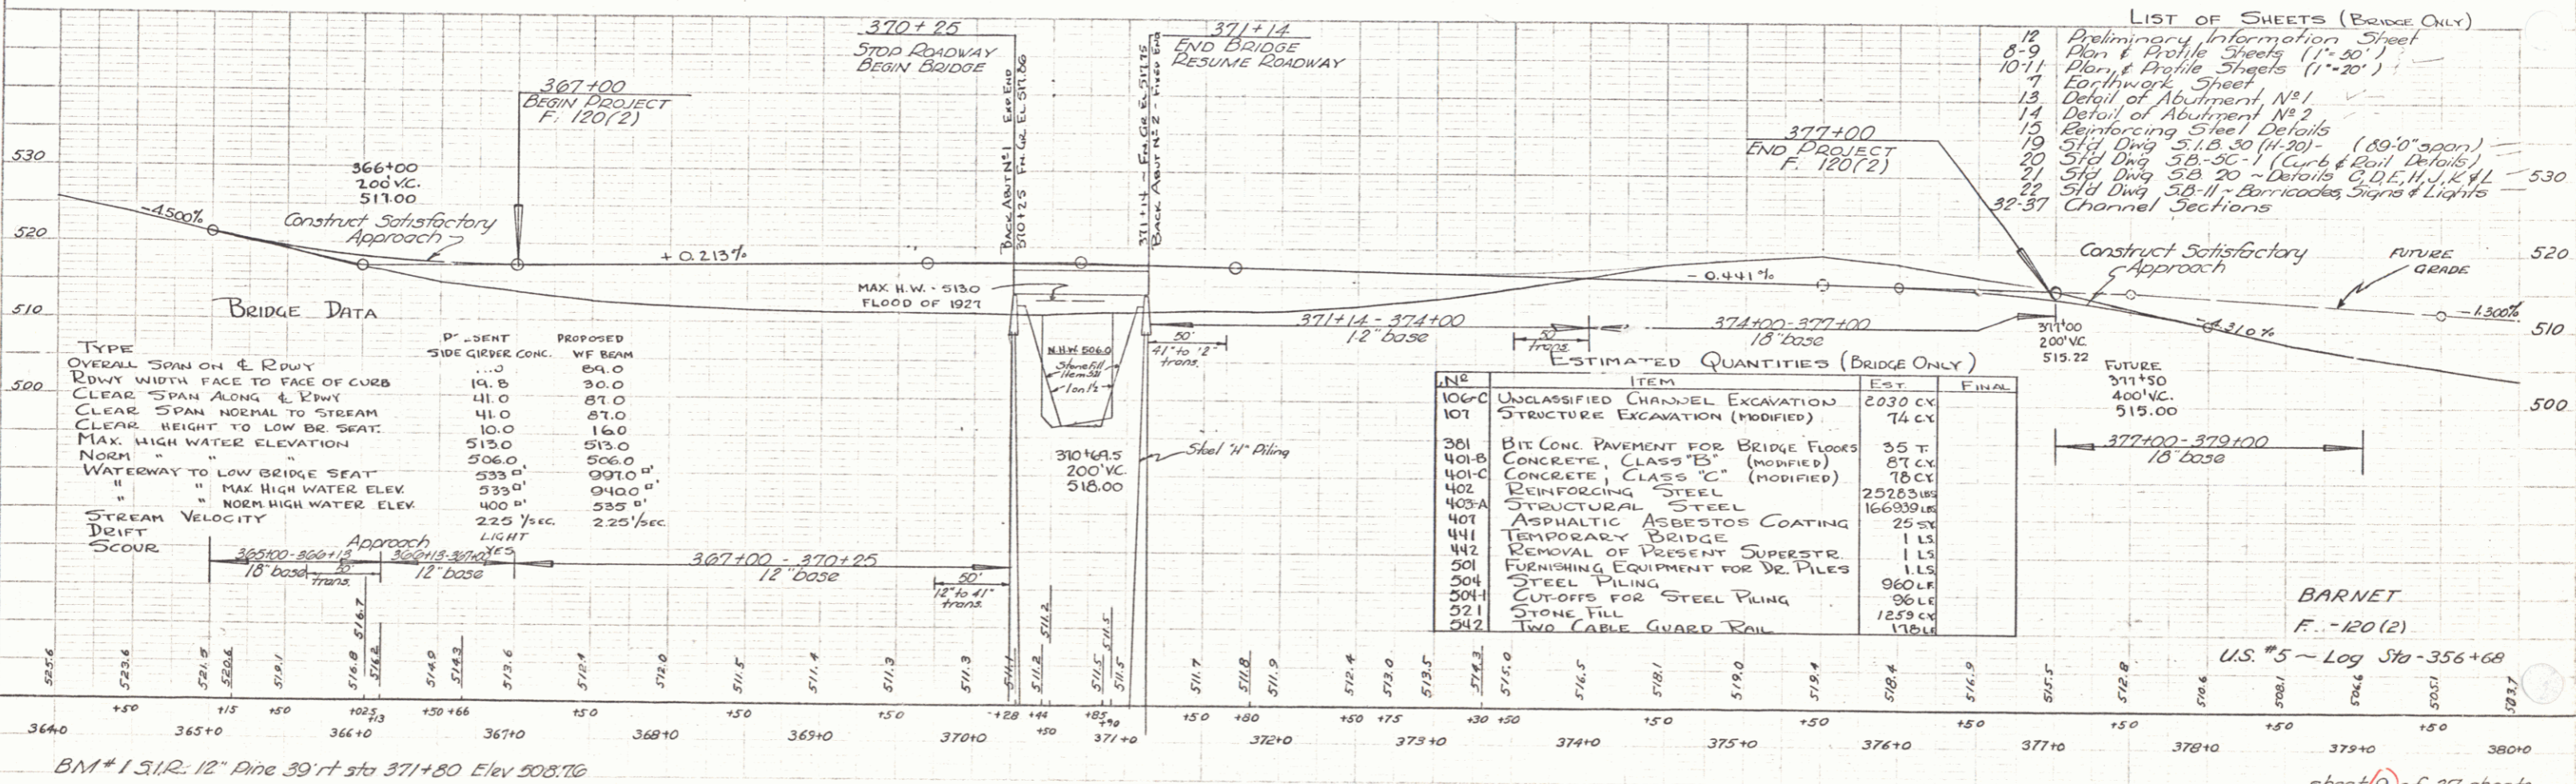 LIST OF SHEETS (BRIDGE ONLY)
12 Preliminary Information Sheet
8-9 Plan & Profile Sheets (1"=50')
10-11 Plan & Profile Sheets (1"=20')
7 Earthwork Sheet
13 Detail of Abutment Nº1
14 Detail of Abutment Nº2
15 Reinforcing Steel Details
19 St'd Dwg S.I.B. 30 (H-20)- (89'-0" span)
20 St'd Dwg S.B.-5C-1 (Curb & Rail Details)
21 Std Dwg S.B 20 ~ Details C,D,E,H,J,K & L
22 St'd Dwg S.B-11 ~ Barricades, Signs & Lights
32-37 Channel Sections
370+25
STOP ROADWAY
BEGIN BRIDGE
371+14
END BRIDGE
RESUME ROADWAY
367+00
BEGIN PROJECT
F. 120(2)
377+00
END PROJECT
F. 120(2)
BACK ABUT Nº1 EXP END
370+25 FN. GR. EL 517.86
371+14 ~ FN. GR EL 517.75
BACK ABUT Nº2 - FIXED END
530
520
510
500
530
520
510
500
366+00
200' V.C.
517.00
-4.500%
Construct Satisfactory
Approach
+0.213%
-0.441%
MAX. H.W. - 513.0
FLOOD OF 1927
N.H.W 506.0
Stone Fill
Item 521
1 on 1½
370+69.5
200' VC.
518.00
Steel "H" Piling
Construct Satisfactory
Approach
FUTURE
GRADE
-1.300%
-4.310%
377+00
200' VC.
515.22
FUTURE
377+50
400' VC.
515.00
377+00-379+00
18" base
371+14 - 374+00
12" base
374+00-377+00
18" base
50'
41" to 12"
trans.
50'
trans.
BRIDGE DATA
PRESENT PROPOSED
TYPE SIDE GIRDER CONC. WF BEAM
OVERALL SPAN ON ℄ RDWY 89.0
RDWY WIDTH FACE TO FACE OF CURB 19.8 30.0
CLEAR SPAN ALONG ℄ RDWY 41.0 87.0
CLEAR SPAN NORMAL TO STREAM 41.0 87.0
CLEAR HEIGHT TO LOW BR. SEAT. 10.0 16.0
MAX. HIGH WATER ELEVATION 513.0 513.0
NORM " " " 506.0 506.0
WATERWAY TO LOW BRIDGE SEAT 533 □' 997.0 □'
" " MAX. HIGH WATER ELEV. 533 □' 940.0 □'
" " NORM. HIGH WATER ELEV. 400 □' 535 □'
STREAM VELOCITY 2.25 '/SEC. 2.25 '/SEC.
DRIFT LIGHT
SCOUR YES
Approach
365+00-366+13
18" base 50' trans.
366+13-367+00
12" base
367+00 - 370+25
12" base
50'
12" to 41"
trans.
ESTIMATED QUANTITIES (BRIDGE ONLY)
Nº ITEM EST. FINAL
106-C UNCLASSIFIED CHANNEL EXCAVATION 2030 CY.
107 STRUCTURE EXCAVATION (MODIFIED) 74 C.Y.
381 BIT. CONC. PAVEMENT FOR BRIDGE FLOORS 35 T.
401-B CONCRETE, CLASS "B" (MODIFIED) 87 C.Y.
401-C CONCRETE, CLASS "C" (MODIFIED) 78 CY.
402 REINFORCING STEEL 25283 LBS
403-A STRUCTURAL STEEL 166939 LBS
407 ASPHALTIC ASBESTOS COATING 25 SY.
441 TEMPORARY BRIDGE 1 LS
442 REMOVAL OF PRESENT SUPERSTR. 1 LS
501 FURNISHING EQUIPMENT FOR DR. PILES 1 LS
504 STEEL PILING 960 LF
504-1 CUT-OFFS FOR STEEL PILING 96 LF
521 STONE FILL 1259 CY
542 TWO CABLE GUARD RAIL 178 LF
BARNET
F. -120(2)
U.S. #5 ~ Log Sta-356+68
525.6 523.6 521.5 520.6 519.1 516.8 516.7 516.2 514.9 514.3 513.6 512.4 512.0 511.5 511.4 511.3 511.3 511.1 511.2 511.2 511.5 511.5 511.5 511.7 511.8 511.9 512.4 513.0 513.5 514.3 515.0 516.5 518.1 519.0 519.4 518.4 516.9 515.5 512.8 510.6 508.1 506.6 505.1 503.7
+50 +15 +50 +025 +13 +50 +66 +50 +50 +50 +28 +44 +50 +85 +90 +50 +80 +50 +75 +30 +50 +50 +50 +50 +50 +50 +50
364+0 365+0 366+0 367+0 368+0 369+0 370+0 371+0 372+0 373+0 374+0 375+0 376+0 377+0 378+0 379+0 380+0
BM #1 S.I.R. 12" Pine 39' rt sta 371+80 Elev 508.76
sheet 9 of 37 sheets